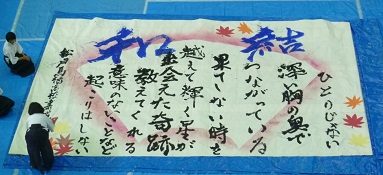 結
和
ひとりじゃない
深い胸の奥で
つながっている
果てしない時を
越えて輝く星が
出会えた奇跡
教えてくれる
意味のないことなど
起こりはしない